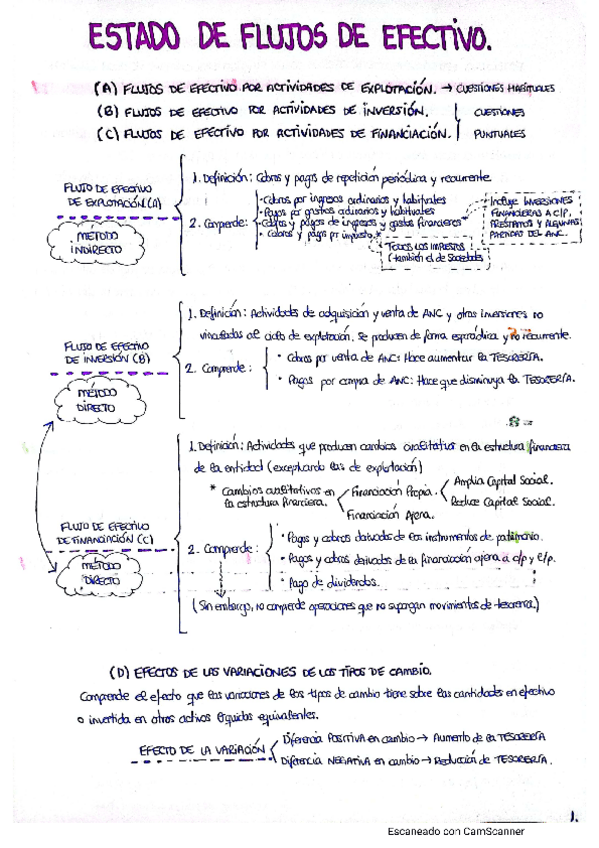 ESTADO DE FLUJOS DE EFECTIVO.
(A) FLUJOS DE EFECTIVO POR ACTIVIDADES DE EXPLOTACIÓN. → CUESTIONES HABITUALES
(B) FLUJOS DE EFECTIVO POR ACTIVIDADES DE INVERSIÓN. CUESTIONES
(C) FLUJOS DE EFECTIVO POR ACTIVIDADES DE FINANCIACIÓN. PUNTUALES
FLUJO DE EFECTIVO
DE EXPLOTACIÓN (A)
MÉTODO
INDIRECTO
1. Definición: Cobros y pagos de repetición periódica y recurrente.
2. Comprende:
· Cobros por ingresos ordinarios y habituales
· Pagos por gastos ordinarios y habituales
· Cobros y pagos de ingresos y gastos financieros*
· Cobros y pagos pr impuesto*
* Incluye INVERSIONES
FINANCIERAS A C/P,
PRÉSTAMOS Y ALGUNAS
PARTIDAS DEL ANC.
TODOS LOS IMPUESTOS
(también el de Sociedades
FLUJO DE EFECTIVO
DE INVERSIÓN (B)
MÉTODO
DIRECTO
1. Definición: Actividades de adquisición y venta de ANC y otras inversiones no
vinculadas al ciclo de explotación. Se producen de forma esporádica y no recurrente.
2. Comprende:
· Cobros por venta de ANC: Hace aumentar la TESORERÍA.
· Pagos por compra de ANC: Hace que disminuya la TESORERÍA.
FLUJO DE EFECTIVO
DE FINANCIACIÓN (C)
MÉTODO
DIRECTO
1. Definición: Actividades que producen cambios cualitativos en la estructura financiera
de la entidad (exceptuando las de explotación)
* Cambios cualitativos en
la estructura financiera.
Financiación Propia.
Amplia Capital Social.
Reduce Capital Social.
Financiación Ajena.
2. Comprende:
· Pagos y cobros derivado de los instrumentos de patrimonio.
· Pagos y cobros derivados de la financiación ajena a c/p y l/p.
· Pago de dividendos.
(Sin embargo, no comprende operaciones que no supongan movimientos de tesorería.)
(D) EFECTOS DE LAS VARIACIONES DE LOS TIPOS DE CAMBIO.
Comprende el efecto que las variaciones de los tipos de cambio tiene sobre las cantidades en efectivo
o invertida en otros activos líquidos equivalentes.
EFECTO DE LA VARIACIÓN
Diferencia POSITIVA en cambio → Aumento de la TESORERÍA
Diferencia NEGATIVA en cambio → Reducción de TESORERÍA.
1.
Escaneado con CamScanner